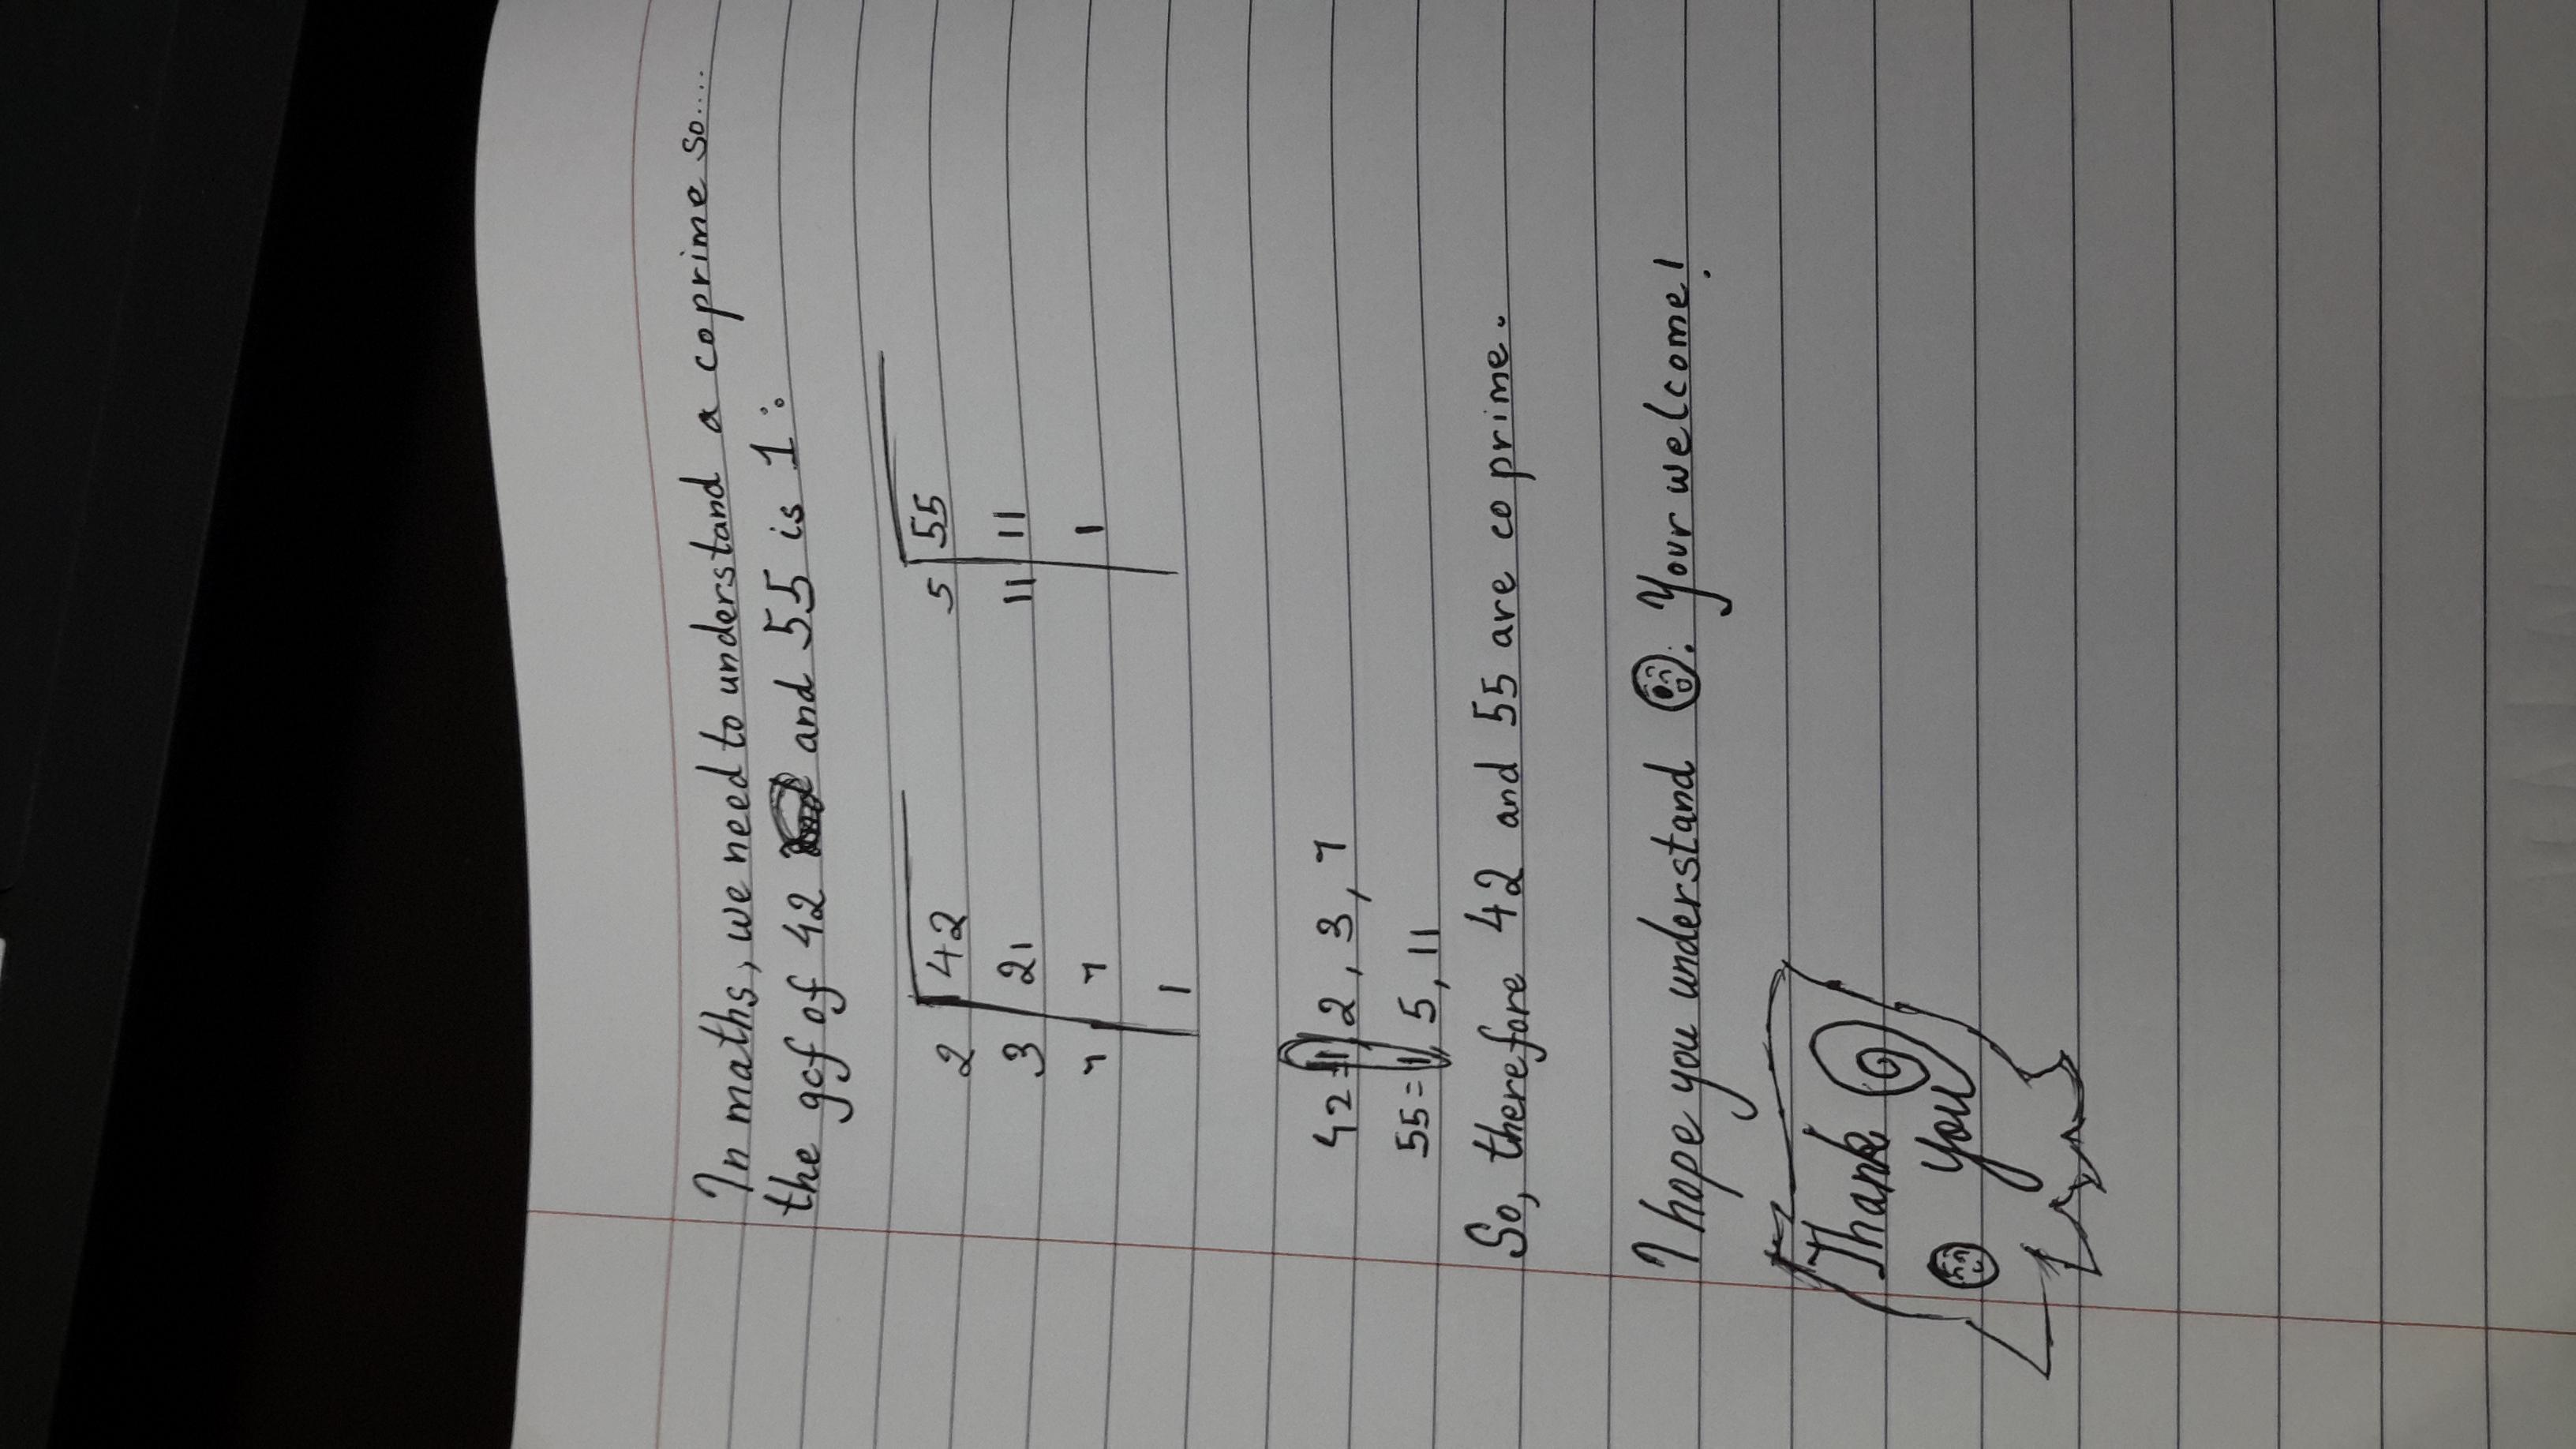 In maths, we need to understand a coprime so....
the gcf of 42 and 55 is 1:
2 42 5 55
3 21 11 11
7 7 1
1
42 = 1, 2, 3, 7
55 = 1, 5, 11
So, therefore 42 and 55 are coprime.
I hope you understand 😊. Your welcome!
Thank
You